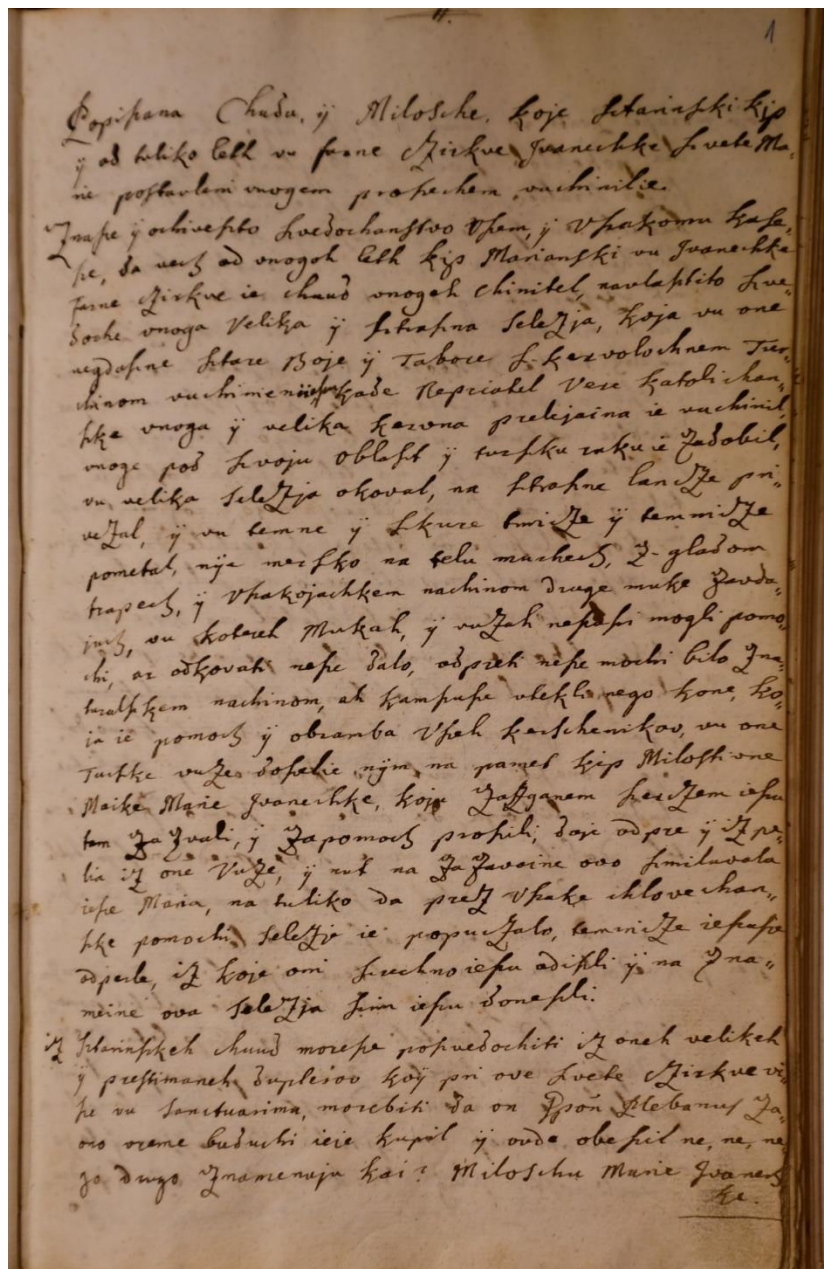 1
Popiſana Chuda, ÿ Milosche, koje ſtarinſki kip
ÿ od tuliko leth vu farne Czirkve Jvanechke ſvete Ma„
rie poſtavleni vnogem proſechem vuchinilie.
Znaſe ÿ ochiveſto ſvedochanſtvo vſem, ÿ vſakomu kaſe„
ſe, da vech od vnogoh leth kip Marianſki vu Jvanechke
farne Czirkve ie chuud vnogeh chinitel, navlaſtito ſve„
doche vnoga velika ÿ ſtraſna ſeleZja, koja vu one
negdaſne ſtare Boje ÿ Tabore ſ-kervolochnem Tur„
chinom vuchinene kade Nepriatel vere katolichan„
ſke vnoga ÿ velika kervna prelijaina ie vuchinil,
vnoge pod ſvoju oblaſt ÿ turſku ruku ie Zadobil,
vu velika ſeleZja okoval, na ſtraſne lancZe pri„
veZal, ÿ vu temne ÿ ſkure tmicZe ÿ temnicZe
pometal, nÿe merſko na telu muchech, Z-gladom
trapech, ÿ vſakojachkem nachinom druge muke Zavda„
juch, vu kotereh Mukah, ÿ vuZah neſuſi mogli pomo„
chi, ar odkovati neſe dalo, odpreti neſe mochi bilo Zna„
turalſkem nachinom, ah kamſuſe vtekli nego kone, ko„
ja ie pomoch ÿ obramba vſeh kerſchenikov, vu one
Turſke vuZe doſelie nÿm na pamet kip Miloſtivne
Maike Marie Jvanechke, koju ZaZganem ſerdZem ieſu
tam ZaZvali, ÿ Zapomoch proſili, daje odpre ÿ iZpe„
lia iZ one VuZe, ÿ nut na ZaZavaine ovo ſmiluvala
ieſe Maria, na tuliko da preZ vſake chlovechan„
ſke pomochi ſeleZje ie popuCZalo, temnicZe ieſuſe
odperle, iZ koje oni ſrechno ieſu odiſli ÿ na Zna„
meine ova ſeleZja ſim ieſu doneſli.
iZ ſtarinſkeh chuud moreſe poſvedochiti iZ oneh velikeh
ÿ preſtimaneh duplerov koÿ pri ove ſvete Czirkve vi„
ſe vu Sanctuariumu, morebiti da on Gſpon Plebanuſ Za„
ovo vreme buduchi ieje kupil ÿ ovde obeſil ne, ne, ne
go drugo Znamenuju kai? Miloschu Marie Jvanech
ke.